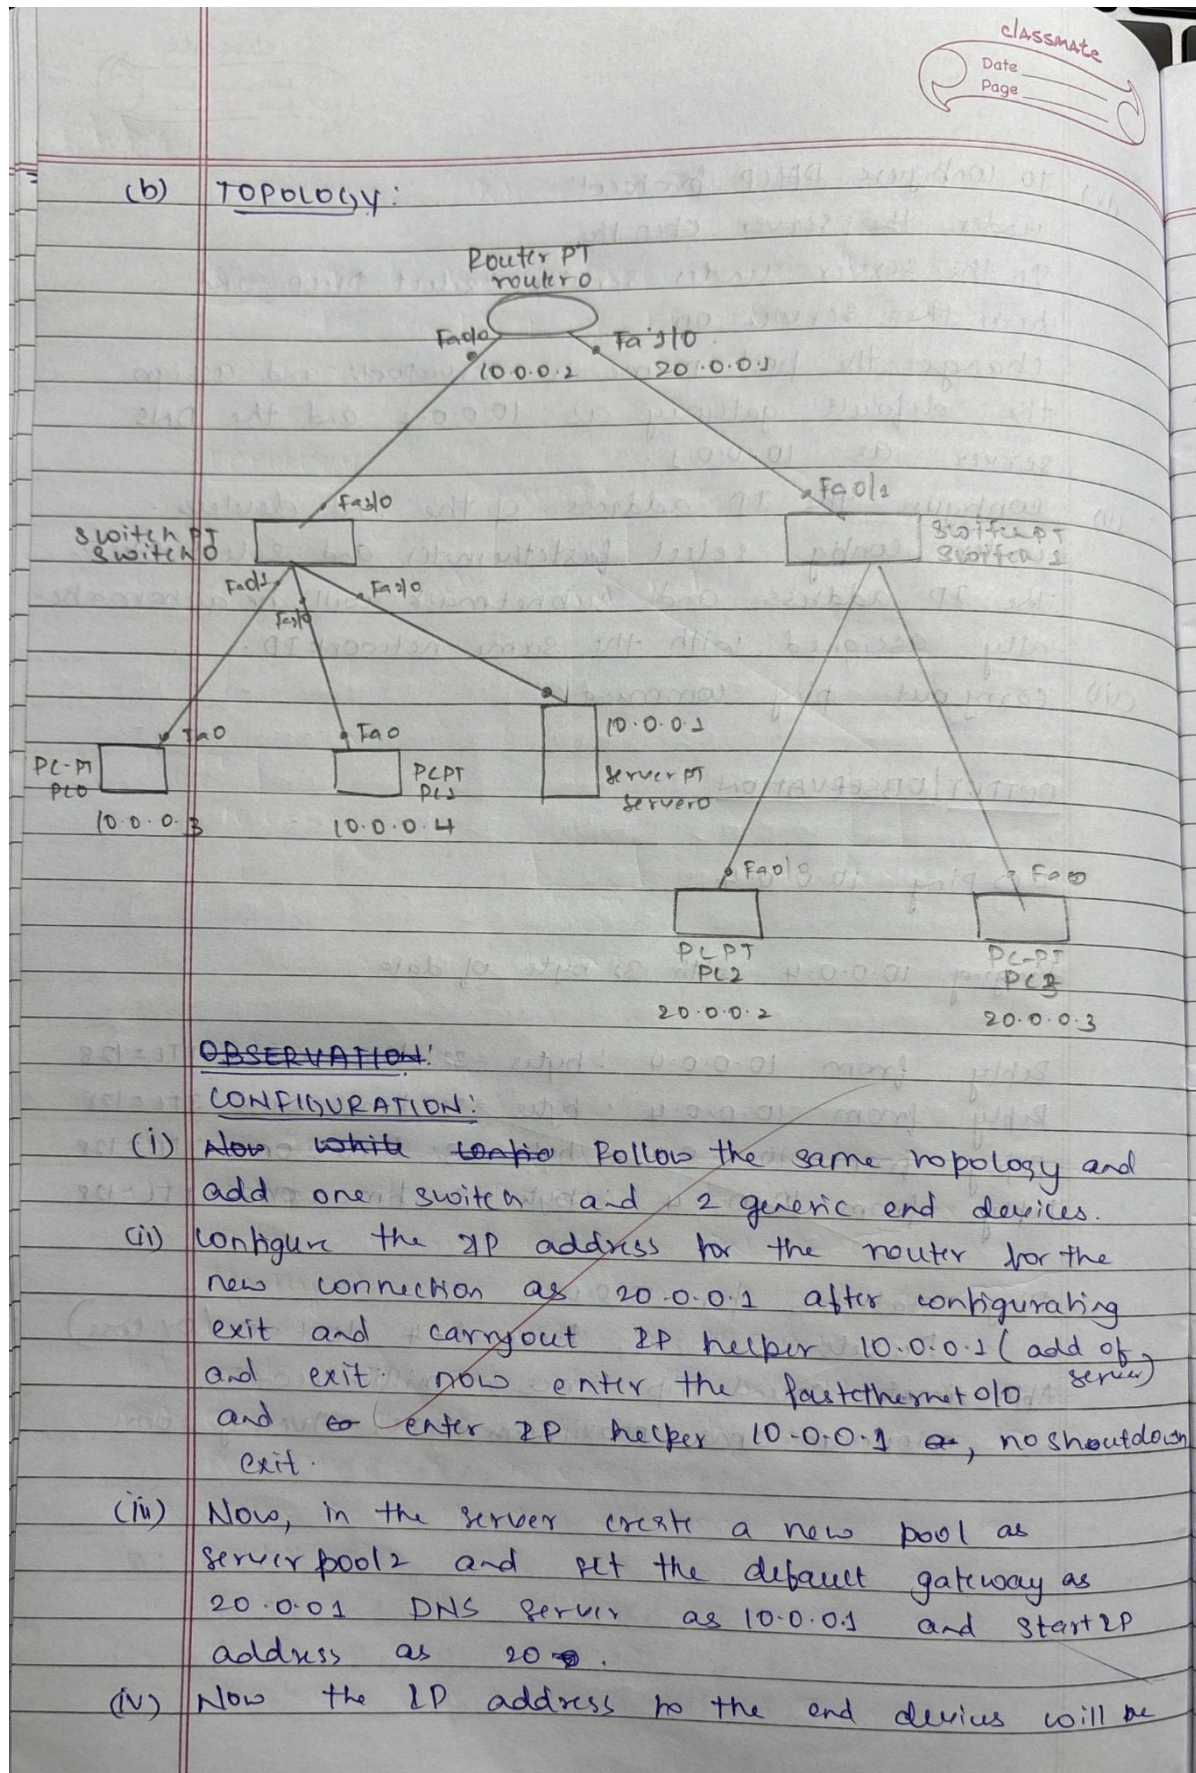 classmate
Date
Page
(b) TOPOLOGY:
Router PT
router0
Fa0/0
Fa1/0
10.0.0.2
20.0.0.1
Fa3/0
Fa0/1
Switch PT
Switch0
Switch PT
Switch 1
Fa0/1
Fa2/0
Fa0
Fa0
10.0.0.1
PC-PT
PC0
PCPT
PC1
Server PT
Server0
10.0.0.3
10.0.0.4
Fa0/3
Fa0
PCPT
PC2
PC-PT
PC3
20.0.0.2
20.0.0.3
OBSERVATION:
CONFIGURATION:
(i) Now white config Follow the same ropology and
add one switch and 2 generic end devices.
(ii) Configure the IP address for the router for the
new connection as 20.0.0.1 after configurating
exit and carryout IP helper 10.0.0.1 (add of
server)
and exit. now enter the fastethernet 0/0
and enter IP helper 10.0.0.1 , no shoutdown
exit.
(iii) Now, in the server create a new pool as
serverpool2 and set the default gateway as
20.0.01 DNS server as 10.0.0.1 and start IP
address as 20 .
(iv) Now the IP address to the end devices will be